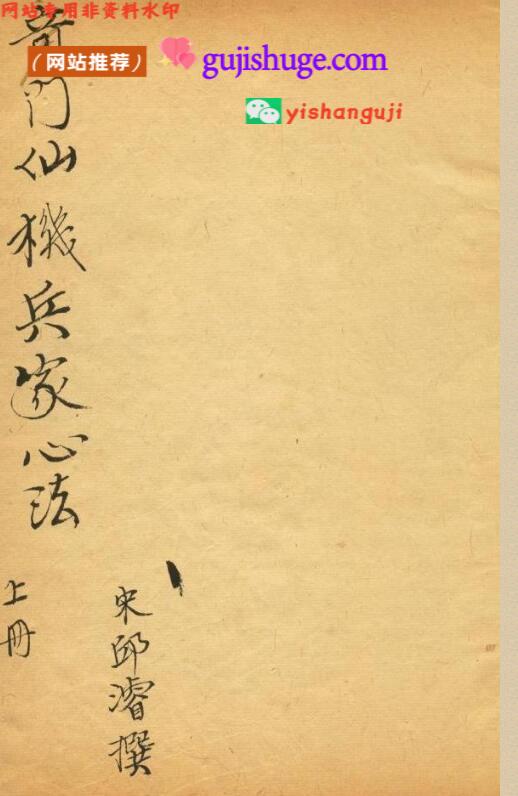 网站专用非资料水印
（网站推荐） gujishuge.com
yishanguji
奇门仙機兵家心法
上冊
宋邱濬撰